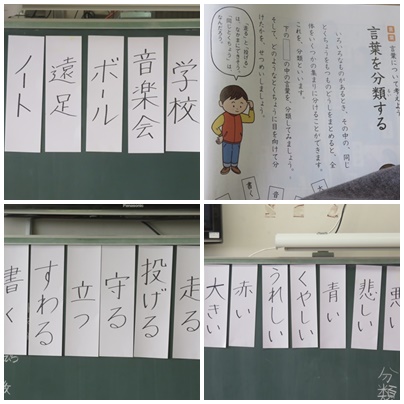 学校
音楽会
ボール
遠足
ノート
言葉について考えよう
言葉を分類する
いろいろなものがあるとき、その中の、同じ
とくちょうをもつものどうしをまとめると、全
体をいくつかの集まりに分けることができます。
これを、分類といいます。
下の
の中の言葉を、分類してみましょう。
そして、どのようなとくちょうに目を向けて分
けたかを、せつめいしましょう。
書く
Panasonic
走る
投げる
守る
立つ
すわる
書く
悪い
悲しい
青い
くやしい
うれしい
赤い
大きい
分類